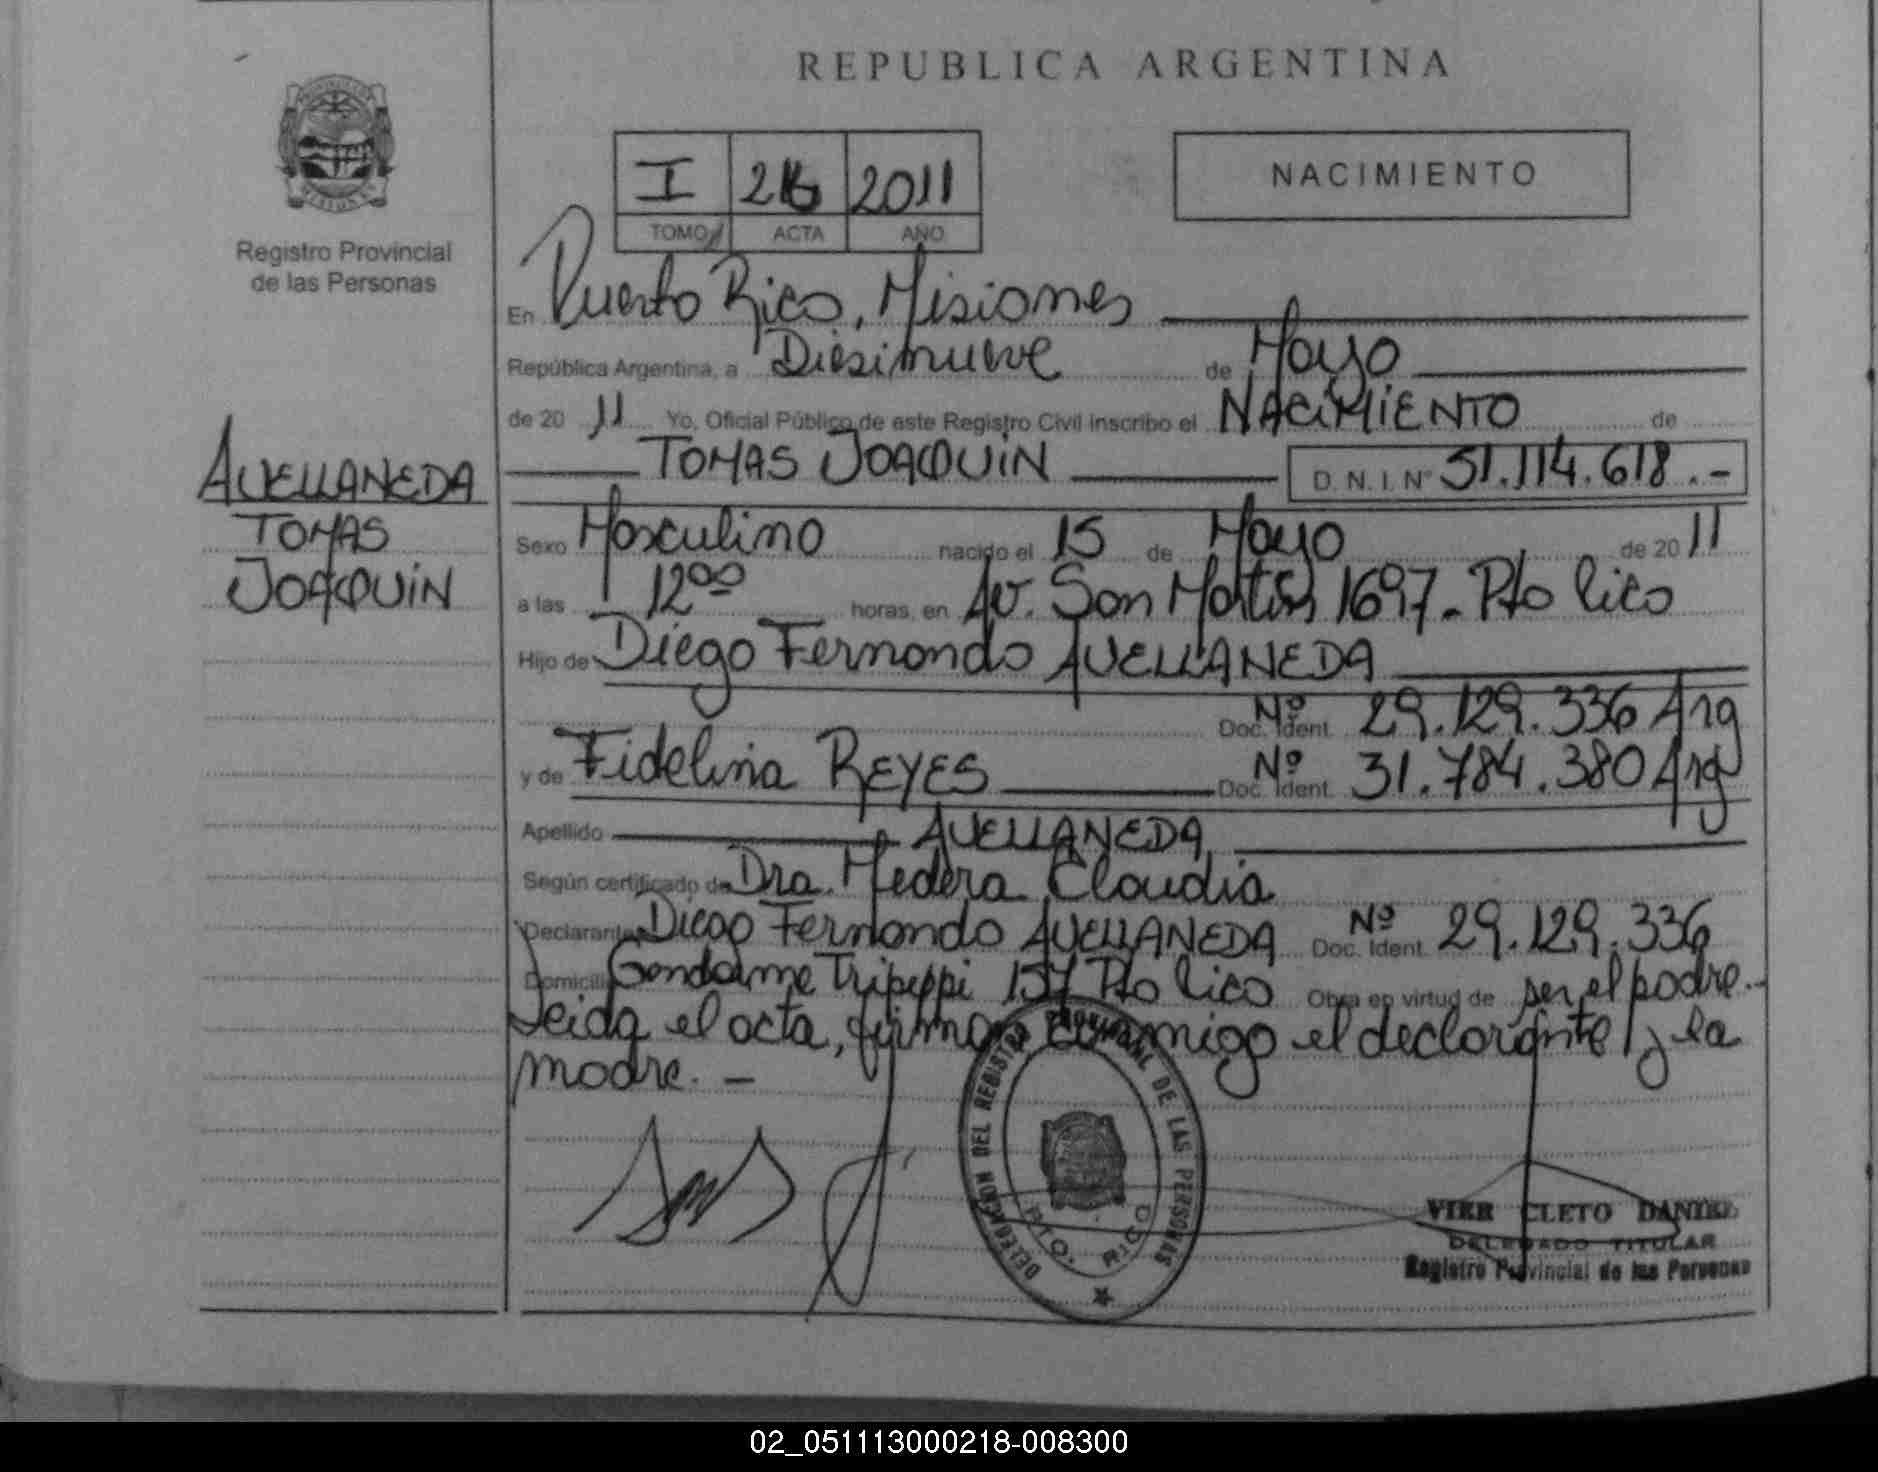 REPUBLICA ARGENTINA
I 216 2011
TOMO ACTA AÑO
NACIMIENTO
Registro Provincial
de las Personas
AVELLANEDA
TOMAS
JOAQUIN
En Puerto Rico, Misiones
República Argentina, a Diesinueve de Mayo
de 20 11 Yo, Oficial Público de este Registro Civil inscribo el NACIMIENTO de
TOMAS JOAQUIN D.N.I. Nº 51.114.618.-
Sexo Masculino nacido el 15 de Mayo de 20 11
a las 12⁰⁰ horas, en Av. San Martin 1697- Pto Rico
Hijo de Diego Fernando AVELLANEDA
Doc. Ident. Nº 29.129.336 Arg
y de Fidelina REYES Doc. Ident. Nº 31.784.380 Arg
Apellido AVELLANEDA
Según certificado de Dra. Medera Claudia
Declarante Diego Fernando AVELLANEDA Doc. Ident. Nº 29.129.336
Domicilio Gendarme Tripeppi 157 Pto Rico Obra en virtud de ser el padre.-
Leida el acta, firman conmigo el declarante y la
madre. -
DELEGACION DEL REGISTRO PROVINCIAL DE LAS PERSONAS
PTO. RICO
VIER CLETO DANIEL
DELEGADO TITULAR
Registro Provincial de las Personas
02_051113000218-008300